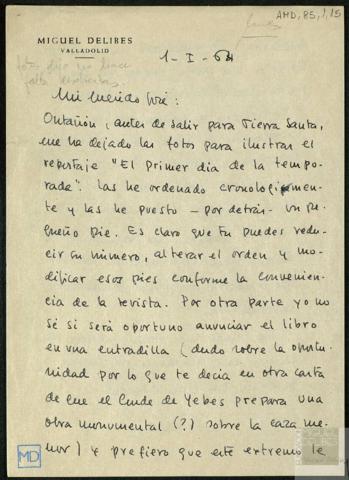 AMD, 85, 1, 15
MIGUEL DELIBES
VALLADOLID
1-I-64
Mi querido José:
Ontañón, antes de salir para Tierra Santa,
me ha dejado las fotos para ilustrar el
reportaje "El primer día de la tempo-
rada". Las he ordenado cronológicamen-
te y las he puesto - por detrás - un pe-
queño pie. Es claro que tu puedes redu-
cir su número, alterar el orden y mo-
dificar esos pies conforme la convenien-
cia de la revista. Por otra parte yo no
sé si será oportuno anunciar el libro
en una entradilla (dudo sobre la oportu-
nidad por lo que te decía en otra carta
de que el Conde de Yebes prepara una
obra monumental (?) sobre la caza me-
nor) y prefiero que este extremo le
MD